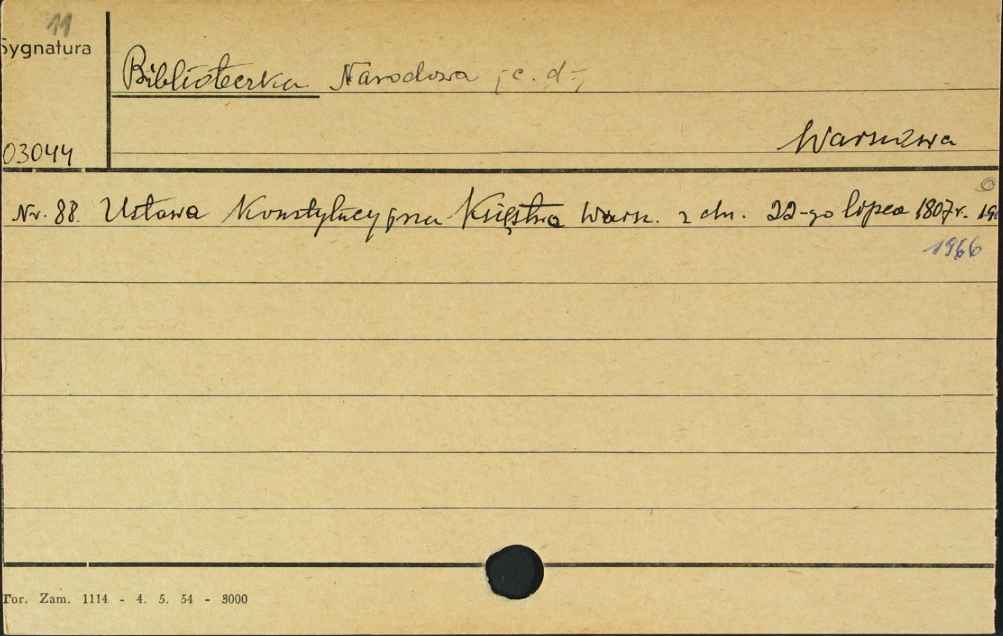 11
Sygnatura
Biblioteczka Narodowa /c. d./
03044
Warszawa
Nr. 88. Ustawa Konstytucyjna Księstwa Warsz. z dn. 22-go lipca 1807 r. 19
1966
Tor. Zam. 1114 - 4. 5. 54 - 3000